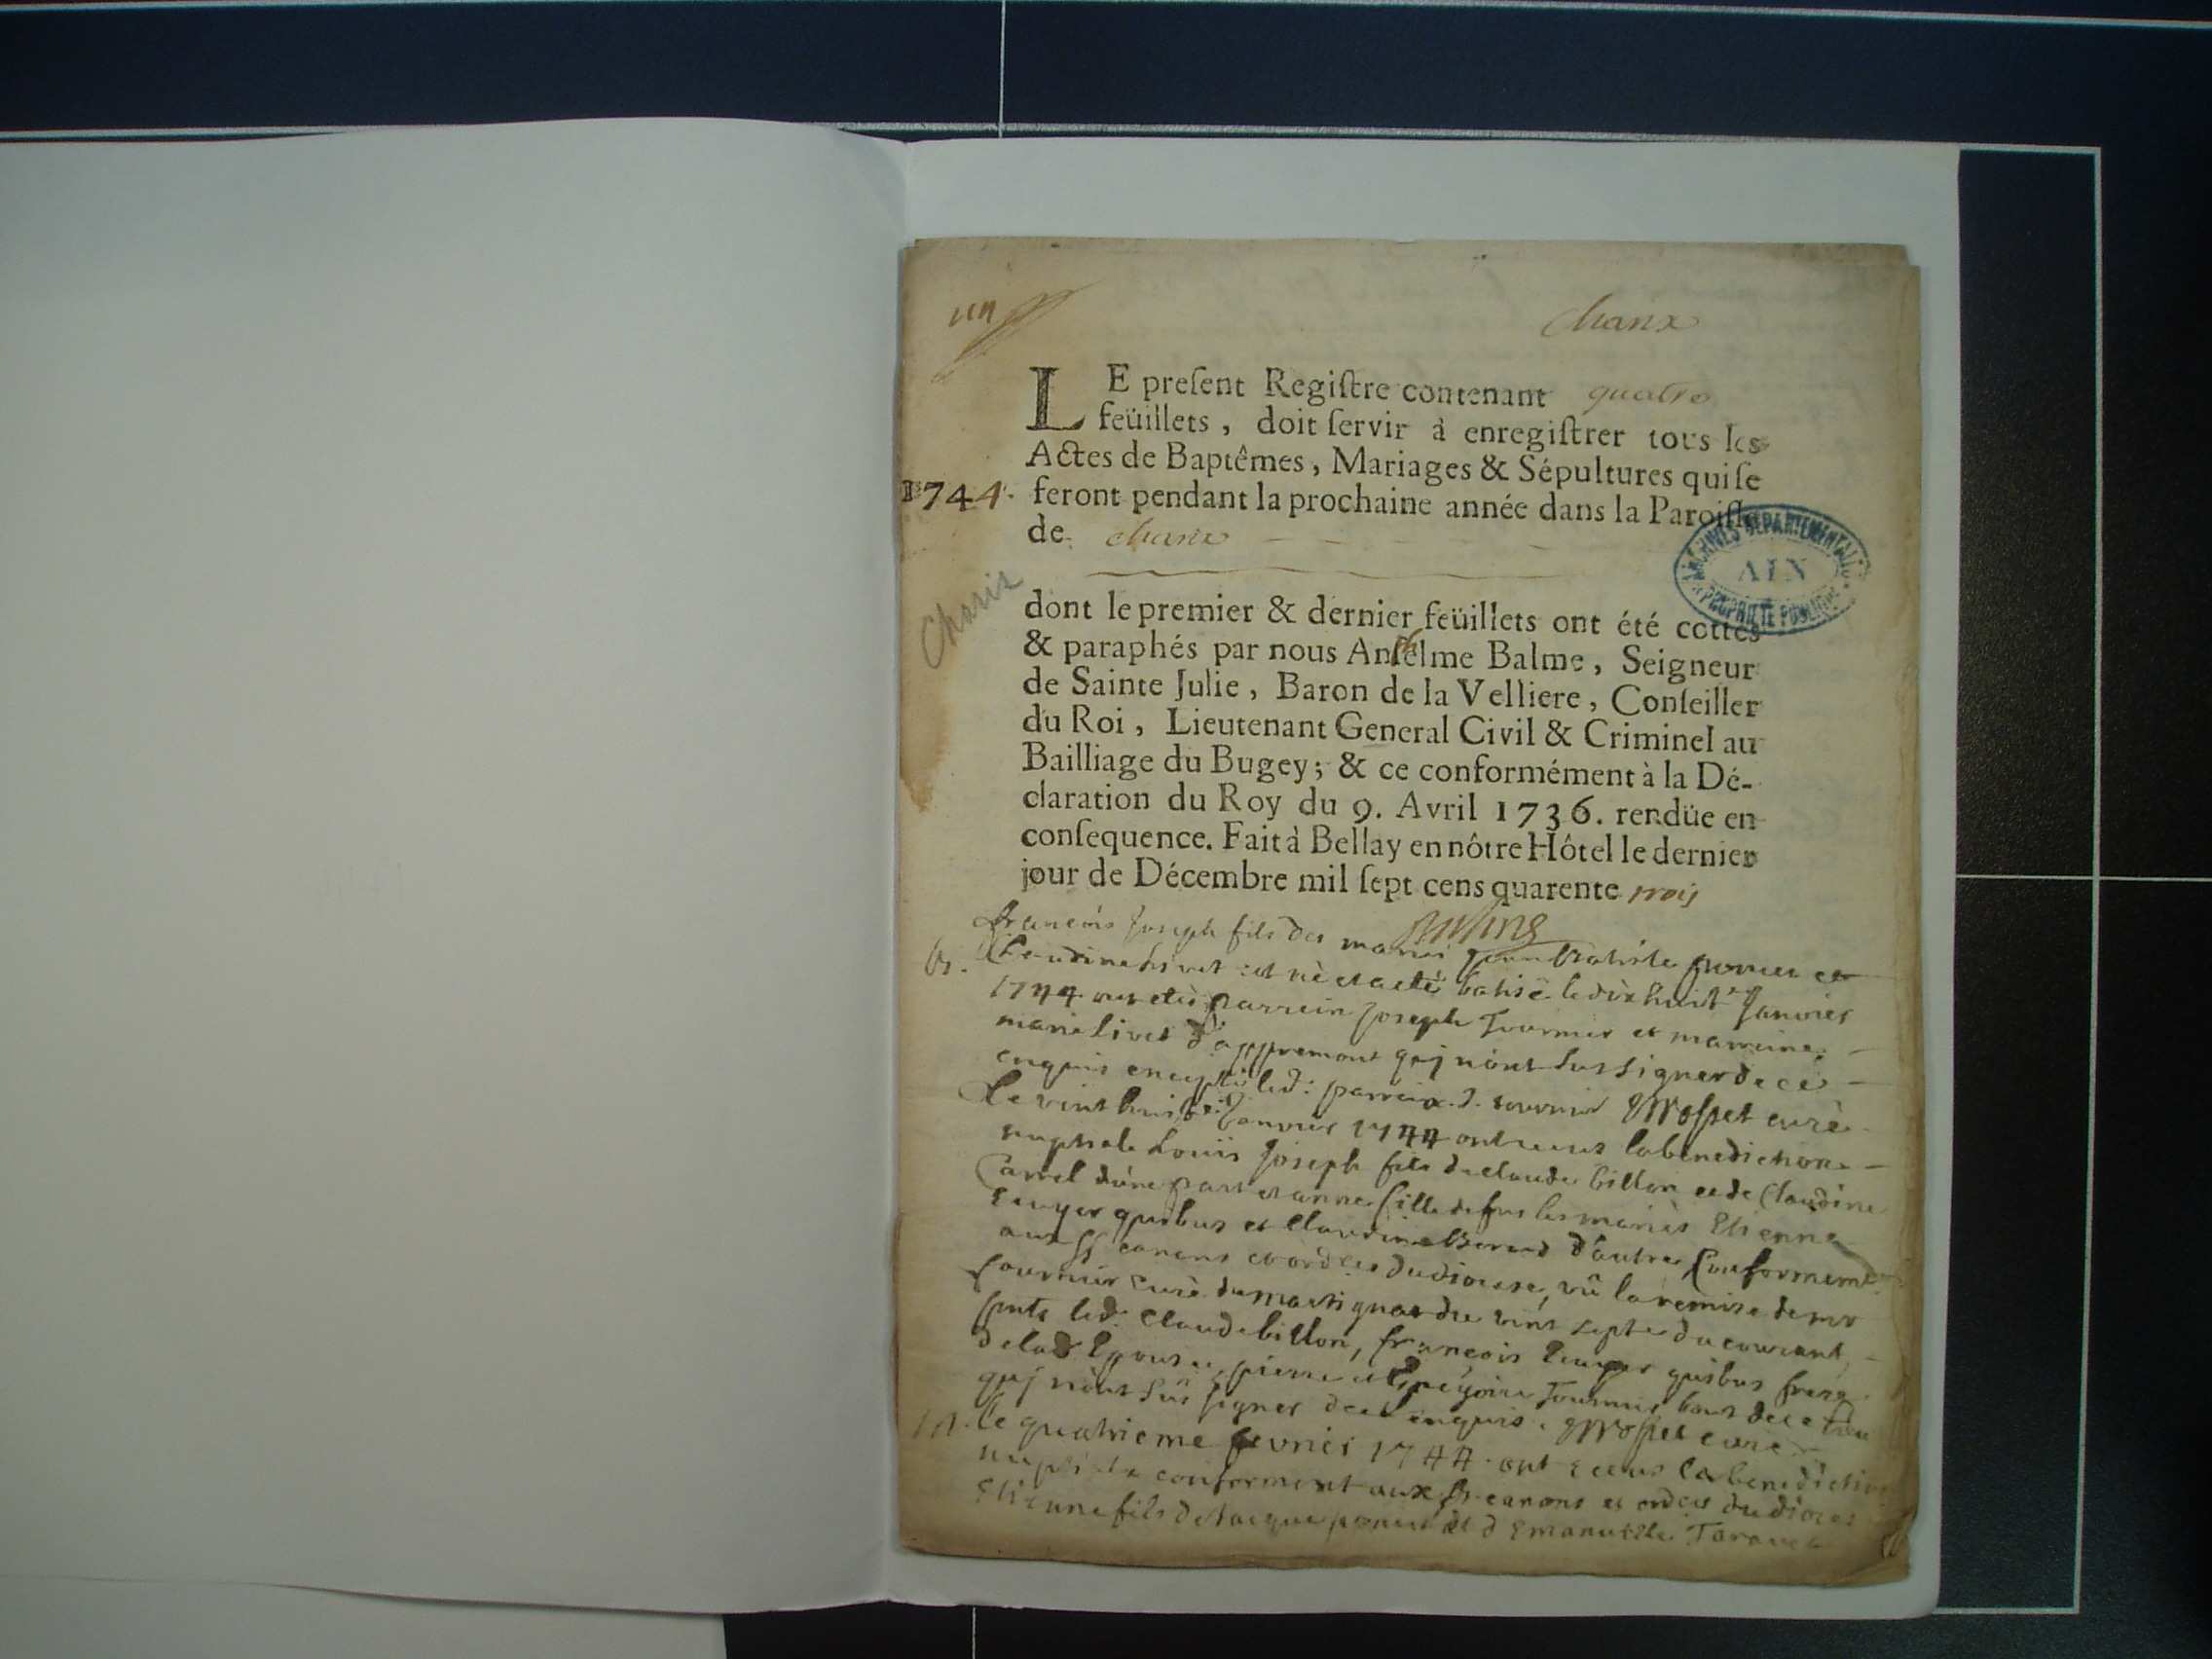 un
Charix
LE preſent Regiſtre contenant quatre
feüillets, doit ſervir à enregiſtrer tous les
Actes de Baptêmes, Mariages & Sépultures qui ſe
1744. feront pendant la prochaine année dans la Paroiſſe
de charix
ARCHIVES DEPARTEMENTALES
AIN
PROPRIETE PUBLIQUE
Charix
dont le premier & dernier feüillets ont été cottés
& paraphés par nous Anthelme Balme, Seigneur
de Sainte Julie, Baron de la Velliere, Conſeiller
du Roi, Lieutenant General Civil & Criminel au
Bailliage du Bugey; & ce conformément à la Dé-
claration du Roy du 9. Avril 1736. rendüe en
conſequence. Fait à Bellay en nôtre Hôtel le dernier
jour de Décembre mil ſept cens quarente trois
françois Joseph fils des mariés et
b. Claudine livet est nè et a etè batisè le dix huit Janvier
1744 ont etè parrein Joseph Tournier et marreine
marie livet d'appremont qui n'ont sus signer de ce
enquis exceptè led: parrein J. tournier curè
Le vint huit Janvier 1744 ont receus la benediction
nuptiale Louïs Joseph fils de claude billon et de Claudine
d'une part et anne fille de feus les mariès Etienne
quibus et Claudine d'autre Conformement
aux canons et ordces du diocese, vû la remise de mr
tournier curè du martignat du vint sept du courant,
led: Claude billon, françois quibus frere
de lad Epouse, pierre et Tournier tous de ce lieu
qui n'ont sus signer de ce enquis. curè
m. Le quatrieme fevrier 1744. ont receus la benediction
nuptiale conforment aux canons et ordces du diocese
Etienne fils de Jacque et d Emanuelle